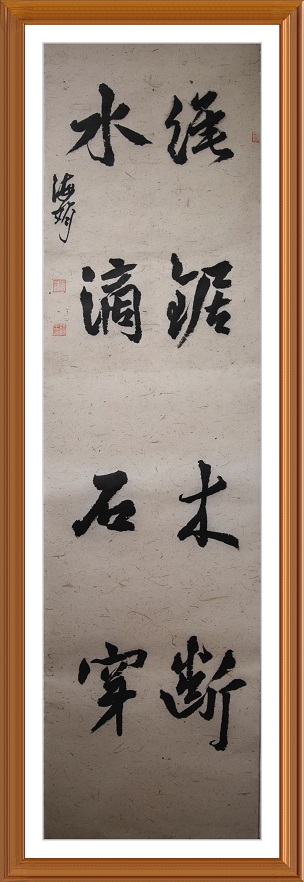 绳锯木断
水滴石穿
海娟